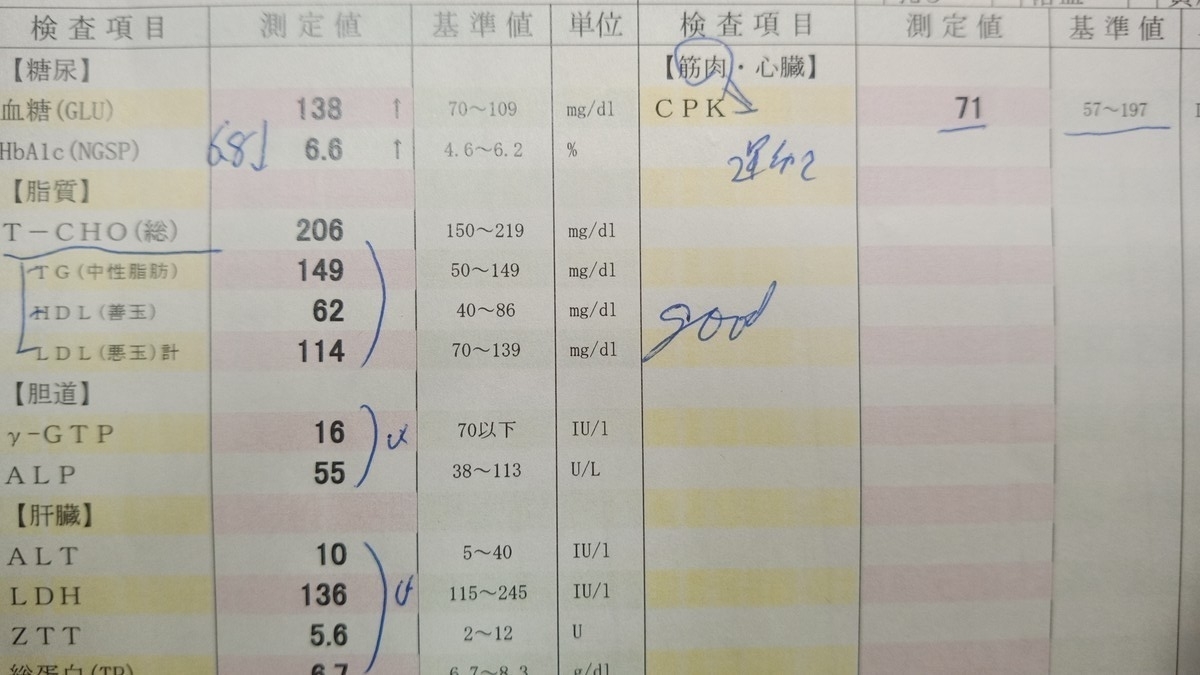 検査項目 測定値 基準値 単位 検査項目 測定値 基準値
【糖尿】 【筋肉・心臓】
血糖(GLU) 138 ↑ 70～109 mg/dl CPK 71 57～197
HbA1c(NGSP) 6.6 ↑ 4.6～6.2 %
【脂質】
T-CHO(総) 206 150～219 mg/dl
TG(中性脂肪) 149 50～149 mg/dl
HDL(善玉) 62 40～86 mg/dl good
LDL(悪玉)計 114 70～139 mg/dl
【胆道】
γ-GTP 16 70以下 IU/l
ALP 55 38～113 U/L
【肝臓】
ALT 10 5～40 IU/l
LDH 136 115～245 IU/l
ZTT 5.6 2～12 U
総蛋白(TP) 6.7 6.7～8.3 g/dl